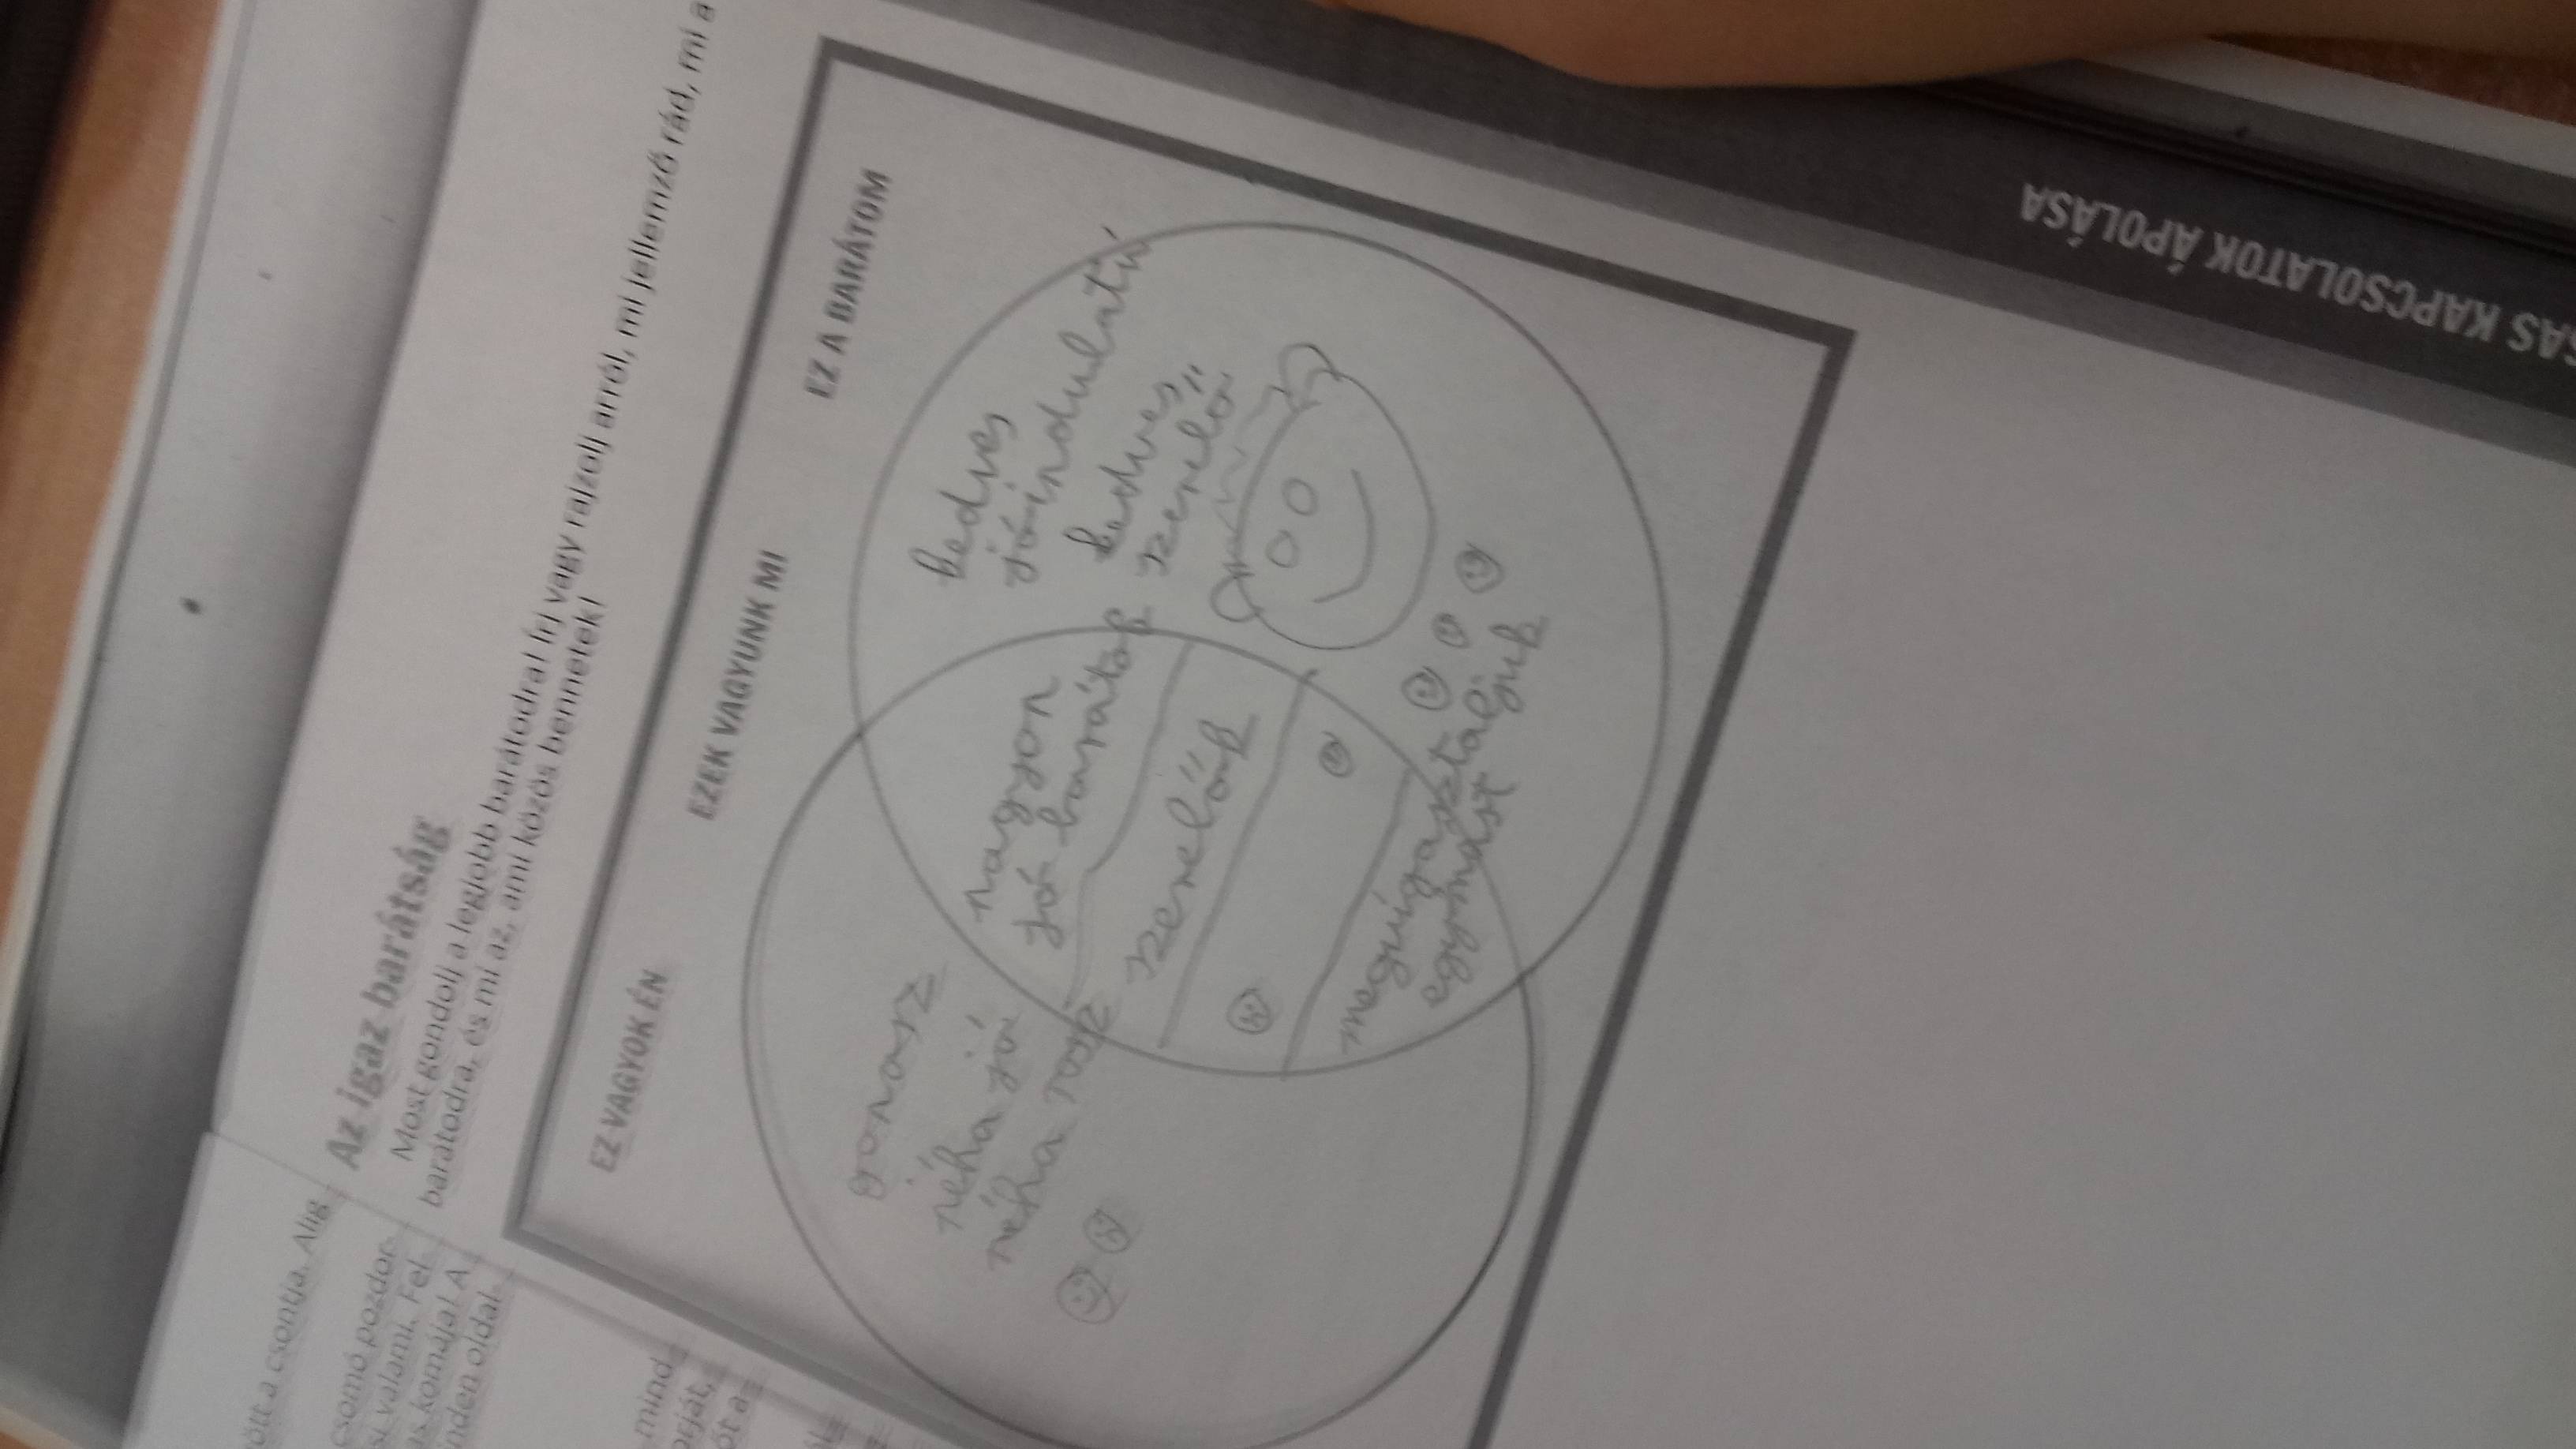 Az igaz barátság
Most gondolj a legjobb barátodra! Írj vagy rajzolj arról, mi jellemző rád, mi a
barátodra, és mi az, ami közös bennetek!
EZ VAGYOK ÉN
EZEK VAGYUNK MI
EZ A BARÁTOM
gonosz
néha jó
néha rosz
nagyon
jó barátok
szerelők
megvigasztaljuk
egymást
kedves
jóindulatú
kedves,
szerelő
KAPCSOLATOK ÁPOLÁSA
ött a csontja. Alig
csomó pozdor-
si valami. Fel-
as komája! A
nden oldal-
mind-
orját,
ót a